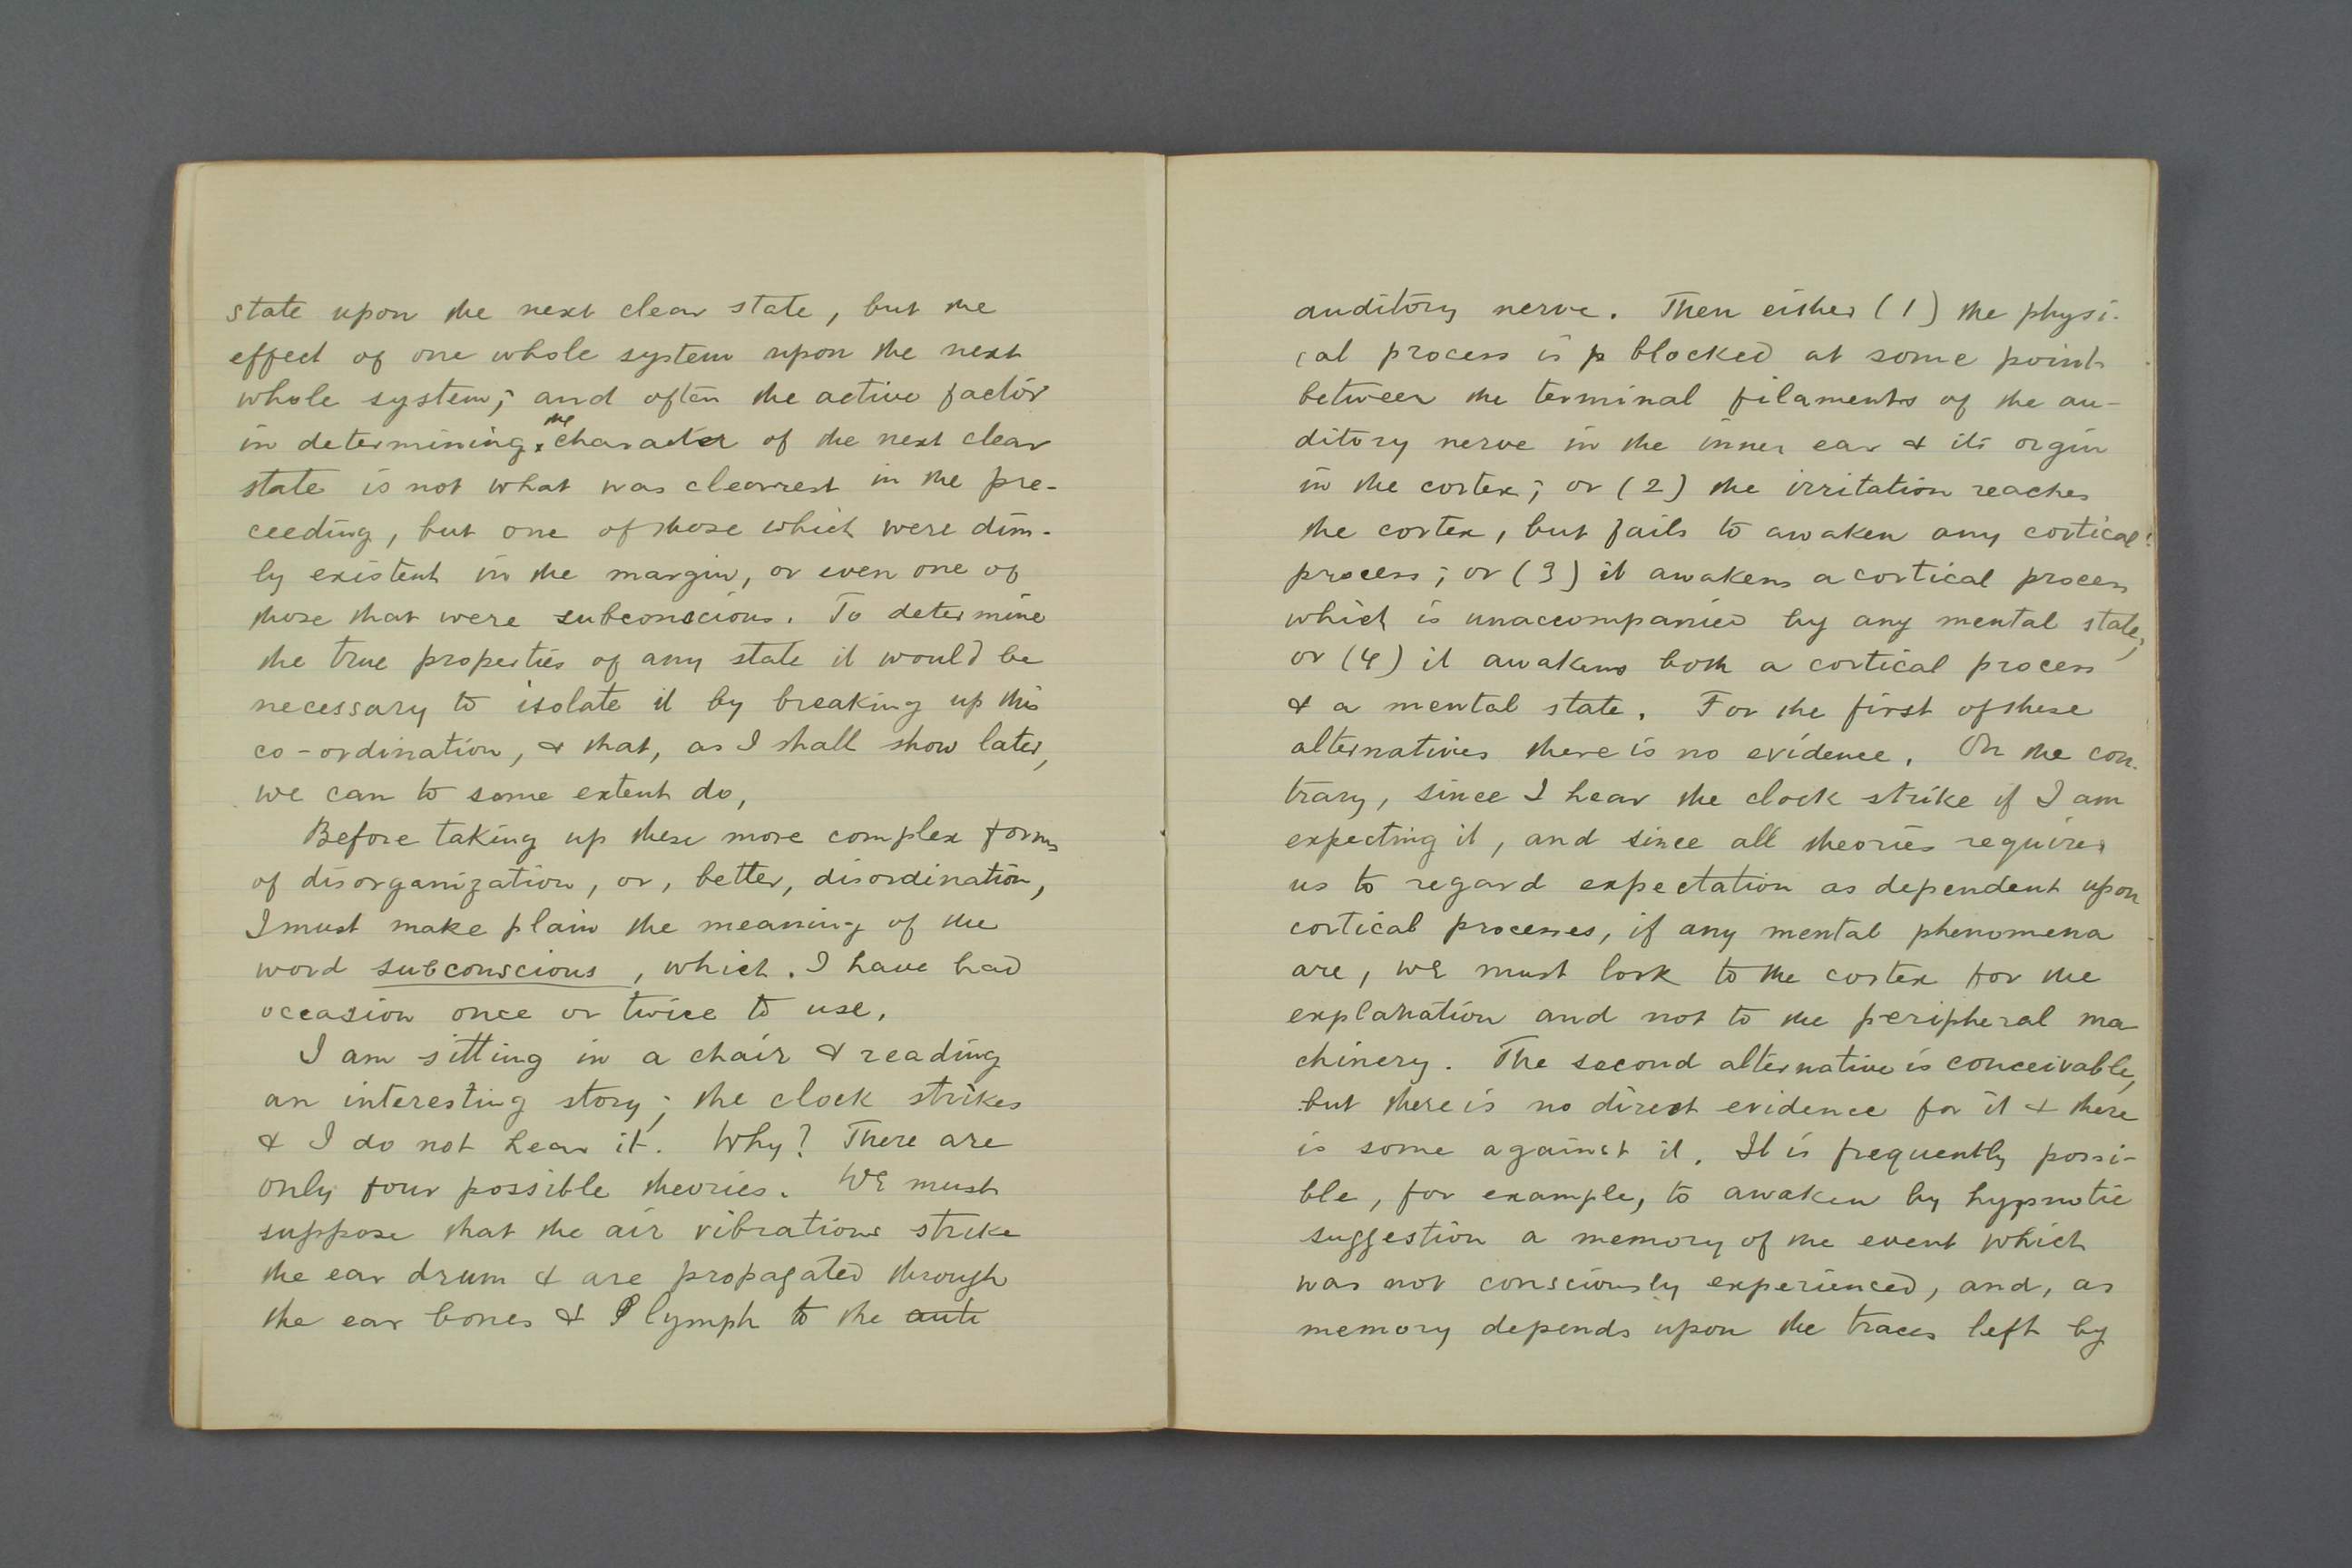 state upon the next clear state, but the
effect of one whole system upon the next
whole system; and often the active factor
in determining the character of the next clear
state is not what was clearrest in the pre-
ceeding, but one of those which were dim-
ly existent in the margin, or even one of
those that were subconscious. To determine
the true properties of any state it would be
necessary to isolate it by breaking up this
co-ordination, & that, as I shall show later,
we can to some extent do,
Before taking up these more complex forms
of disorganization, or, better, disordination,
I must make plain the meaning of the
word subconscious, which I have had
occasion once or twice to use.
I am sitting in a chair & reading
an interesting story; the clock strikes
& I do not hear it. Why? There are
only four possible theories. We must
suppose that the air vibrations strike
the ear drum & are propagated through
the ear bones & lymph to the aute
auditory nerve. Then either (1) the physi-
cal process is p blocked at some point
between the terminal filaments of the au-
ditory nerve in the inner ear & its orgin
in the cortex; or (2) the irritation reaches
the cortex, but fails to awaken any cortical
process; or (3) it awakens a cortical process
which is unaccompanied by any mental state;
or (4) it awakens both a cortical process
& a mental state. For the first of these
alternatives there is no evidence. On the con-
trary, since I hear the clock strike if I am
expecting it, and since all theories requires
us to regard expectation as dependent upon
cortical processes, if any mental phenomena
are, we must look to the cortex for the
explanation and not to the peripheral ma
chinery. The second alternative is conceivable,
but there is no direct evidence for it & there
is some against it. It is frequently possi-
ble, for example, to awaken by hypnotic
suggestion a memory of the event which
was not consciously experienced, and, as
memory depends upon the traces left by